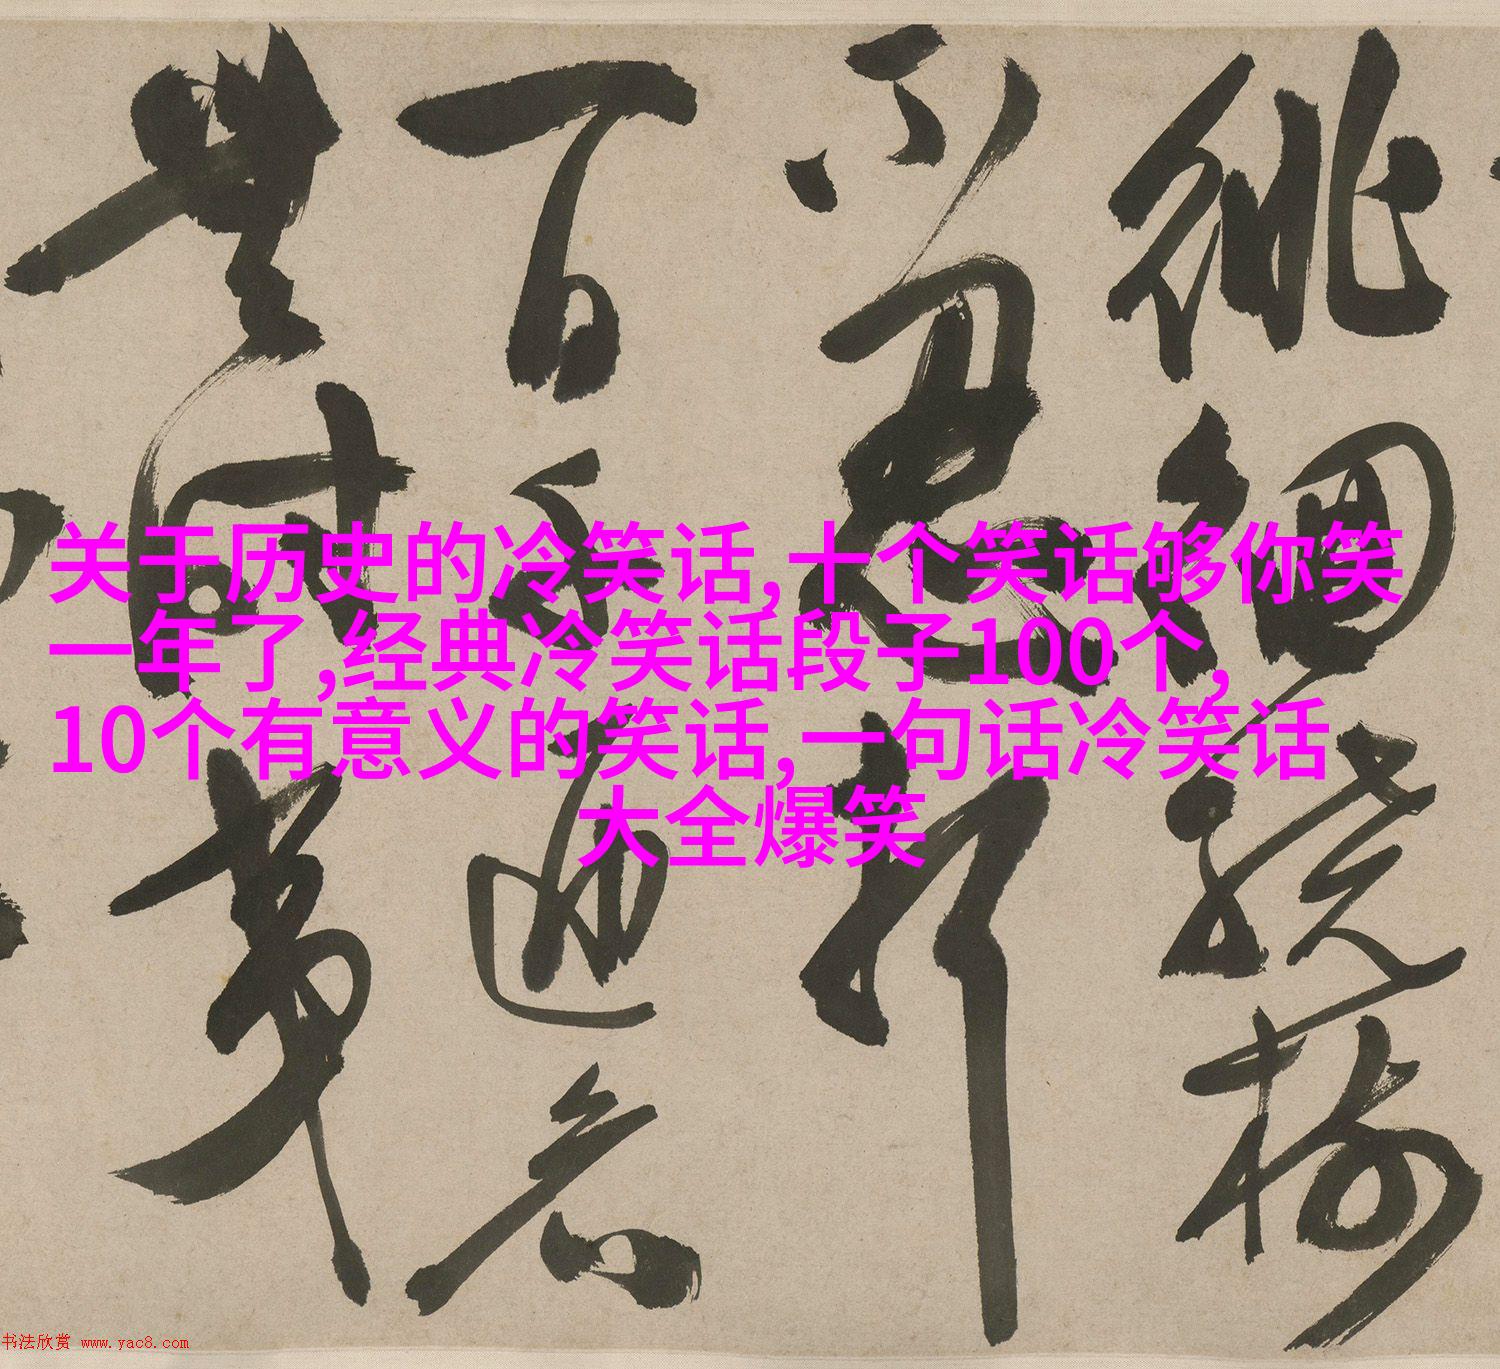 徘徊繞樹
不忍折
一日千匝看
無時夷
关于历史的冷笑话,十个笑话够你笑
一年了,经典冷笑话段子100个,
10个有意义的笑话,一句话冷笑话
大全爆笑
书法欣赏 www.yac8.com